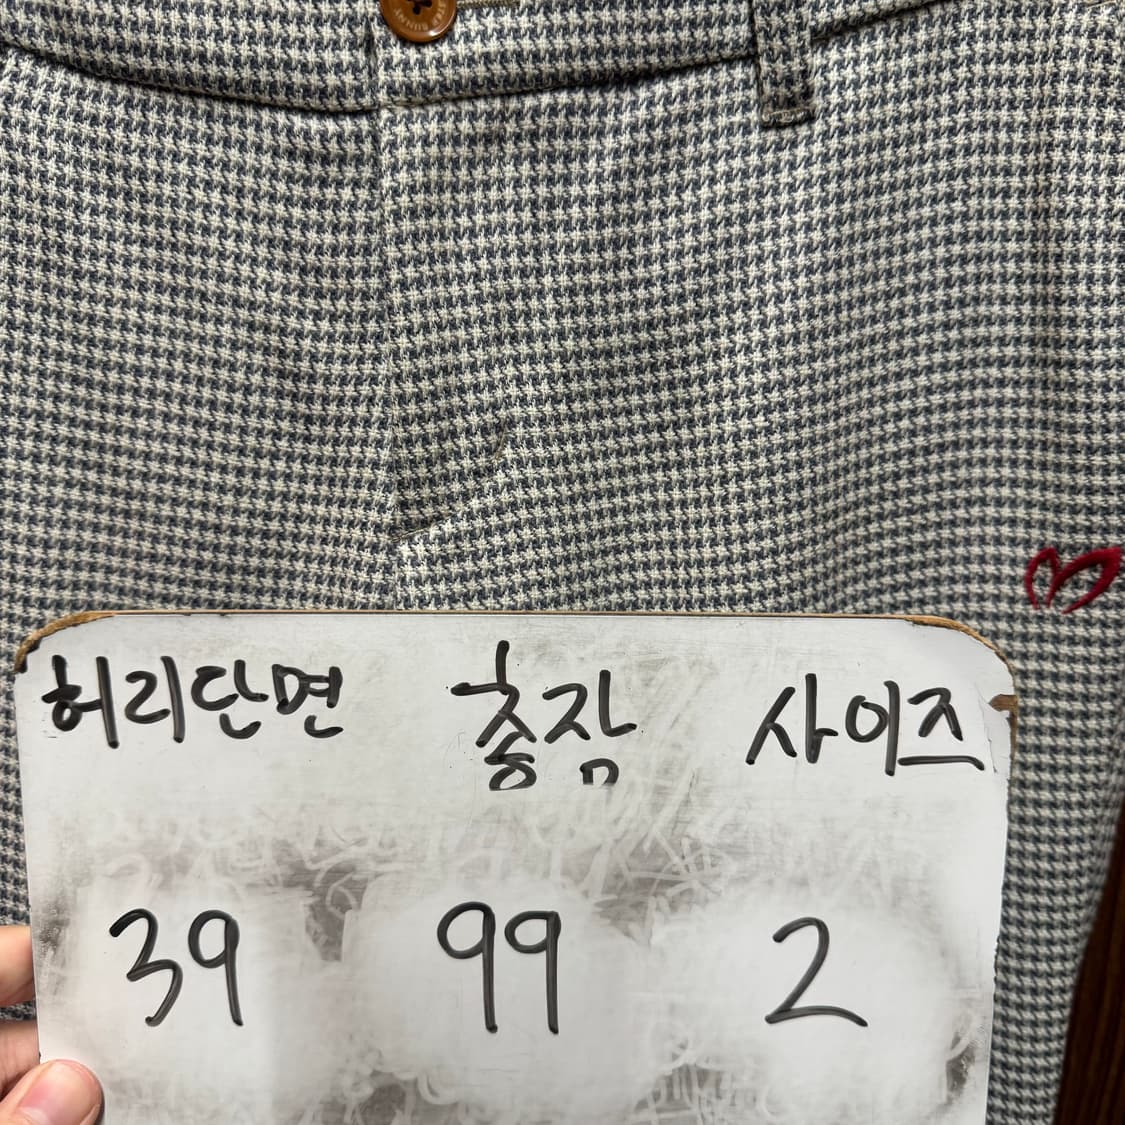 허리단면 총장 사이즈
39 99 2